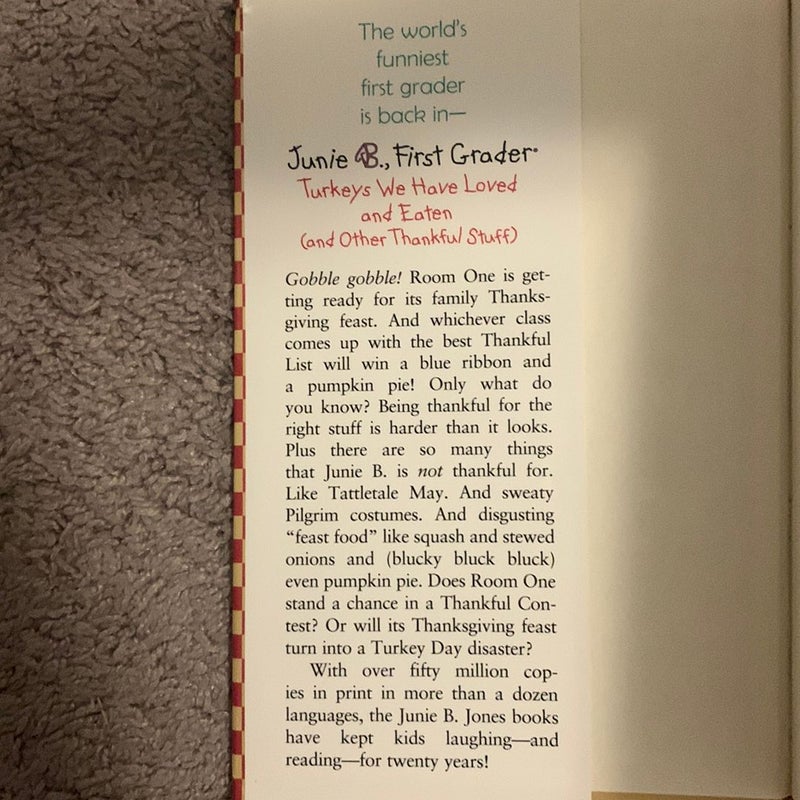 The world's
funniest
first grader
is back in—
Junie B., First Grader®
Turkeys We Have Loved
and Eaten
(and Other Thankful Stuff)
Gobble gobble! Room One is get-
ting ready for its family Thanks-
giving feast. And whichever class
comes up with the best Thankful
List will win a blue ribbon and
a pumpkin pie! Only what do
you know? Being thankful for the
right stuff is harder than it looks.
Plus there are so many things
that Junie B. is not thankful for.
Like Tattletale May. And sweaty
Pilgrim costumes. And disgusting
“feast food” like squash and stewed
onions and (blucky bluck bluck)
even pumpkin pie. Does Room One
stand a chance in a Thankful Con-
test? Or will its Thanksgiving feast
turn into a Turkey Day disaster?
With over fifty million cop-
ies in print in more than a dozen
languages, the Junie B. Jones books
have kept kids laughing—and
reading—for twenty years!